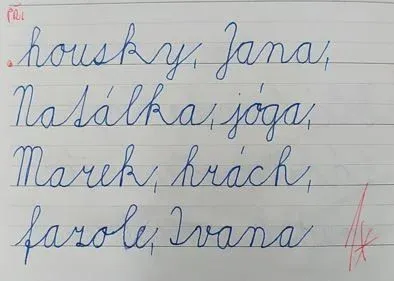 housky, Jana,
Natálka, jóga,
Marek, hrách,
fazole, Ivana